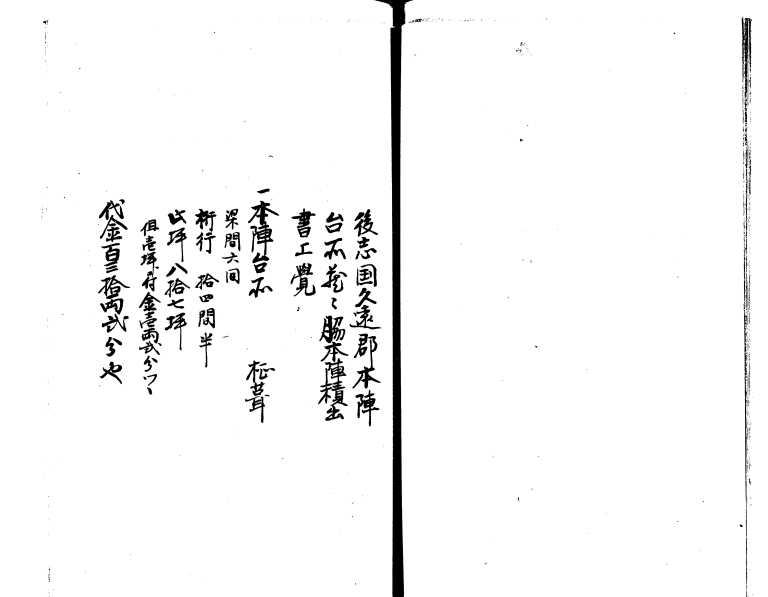 後志国久遠郡本陣
台所幷ニ脇本陣積出
書上覺
一本陣台所 柾葺
梁間六間
桁行 拾四間半
此坪八拾七坪
但壱坪ニ付金壱両弐分ツヽ
代金百三拾両弐分也